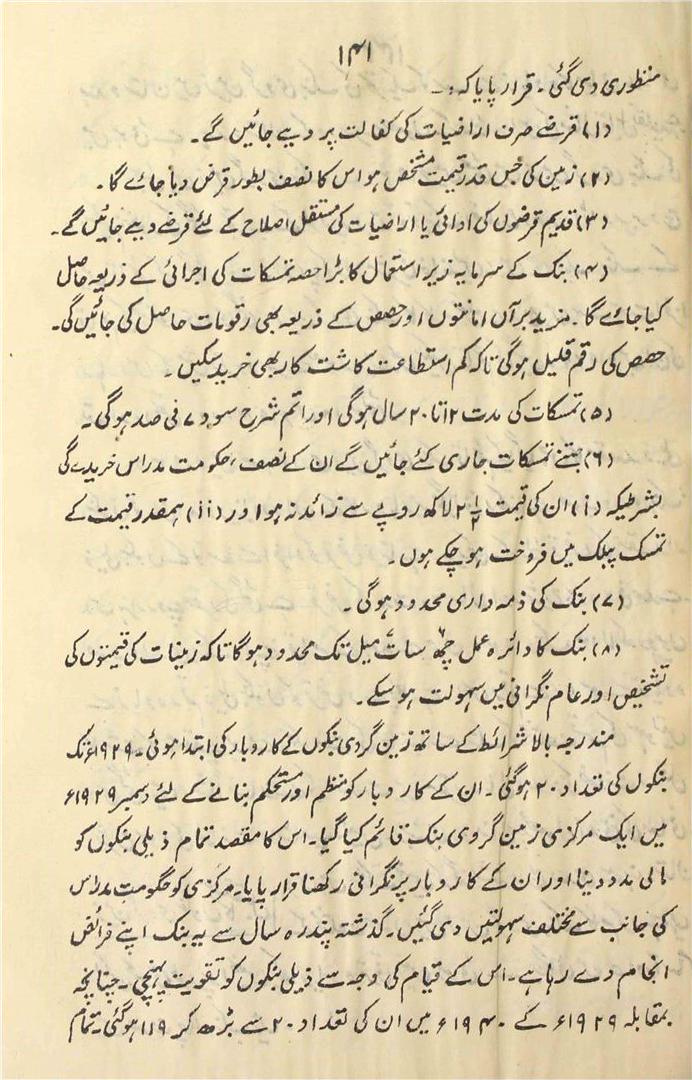 ۱۴۱
منظوری دی گئی ۔ قرار پایا کہ :۔
(۱) قرضے صرف اراضیات کی کفالت پر دیے جائیں گے۔
(۲) زمین کی جس قدر قیمت مشخص ہو اس کا نصف بطور قرض دیا جائے گا۔
(۳) قدیم قرضوں کی ادائی یا اراضیات کی مستقل اصلاح کے لئے قرضے دیے جائیں گے۔
(۴) بنک کے سرمایہ زیر استعمال کا بڑا حصہ تمسکات کی اجرائی کے ذریعہ حاصل
کیا جائے گا۔ مزید برآں امانتوں اور حصص کے ذریعہ بھی رقومات حاصل کی جائیں گی۔
حصص کی رقم قلیل ہوگی تاکہ کم استطاعت کاشت کار بھی خرید سکیں ۔
(۵) تمسکات کی مدت ۱۲ تا ۲۰ سال ہوگی اور اتم شرح سود ۷ فی صد ہوگی ۔
(۶) جتنے تمسکات جاری کئے جائیں گے ان کے نصف ، حکومت مدراس خریدے گی
بشرطیکہ (i) ان کی قیمت ۲½ لاکھ روپے سے زائد نہ ہو اور (ii) ہمقدر قیمت کے
تمسک پبلک میں فروخت ہو چکے ہوں ۔
(۷) بنک کی ذمہ داری محدود ہوگی ۔
(۸) بنک کا دائرہ عمل چھ سات میل تک محدود ہوگا تاکہ زمینات کی قیمتوں کی
تشخیص اور عام نگرانی میں سہولت ہو سکے ۔
مندرجہ بالا شرائط کے ساتھ زمین گروی بنکوں کے کاروبار کی ابتدا ہوئی ۔ ۱۹۲۹ء تک
بنکوں کی تعداد ۲۰ ہوگئی ۔ ان کے کاروبار کو منظم اور مستحکم بنانے کے لئے دسمبر ۱۹۲۹ء
میں ایک مرکزی زمین گروی بنک قائم کیا گیا۔ اس کا مقصد تمام ذیلی بنکوں کو
مالی مدد دینا اور ان کے کاروبار پر نگرانی رکھنا قرار پایا۔ مرکزی کو حکومت مدراس
کی جانب سے مختلف سہولتیں دی گئیں ۔ گذشتہ پندرہ سال سے یہ بنک اپنے فرائض
انجام دے رہا ہے۔ اس کے قیام کی وجہ سے ذیلی بنکوں کو تقویت پہنچی ۔ چنانچہ
بمقابلہ ۱۹۲۹ء کے ۱۹۴۰ء میں ان کی تعداد ۲۰ سے بڑھ کر ۱۱۹ ہوگئی۔ تمام